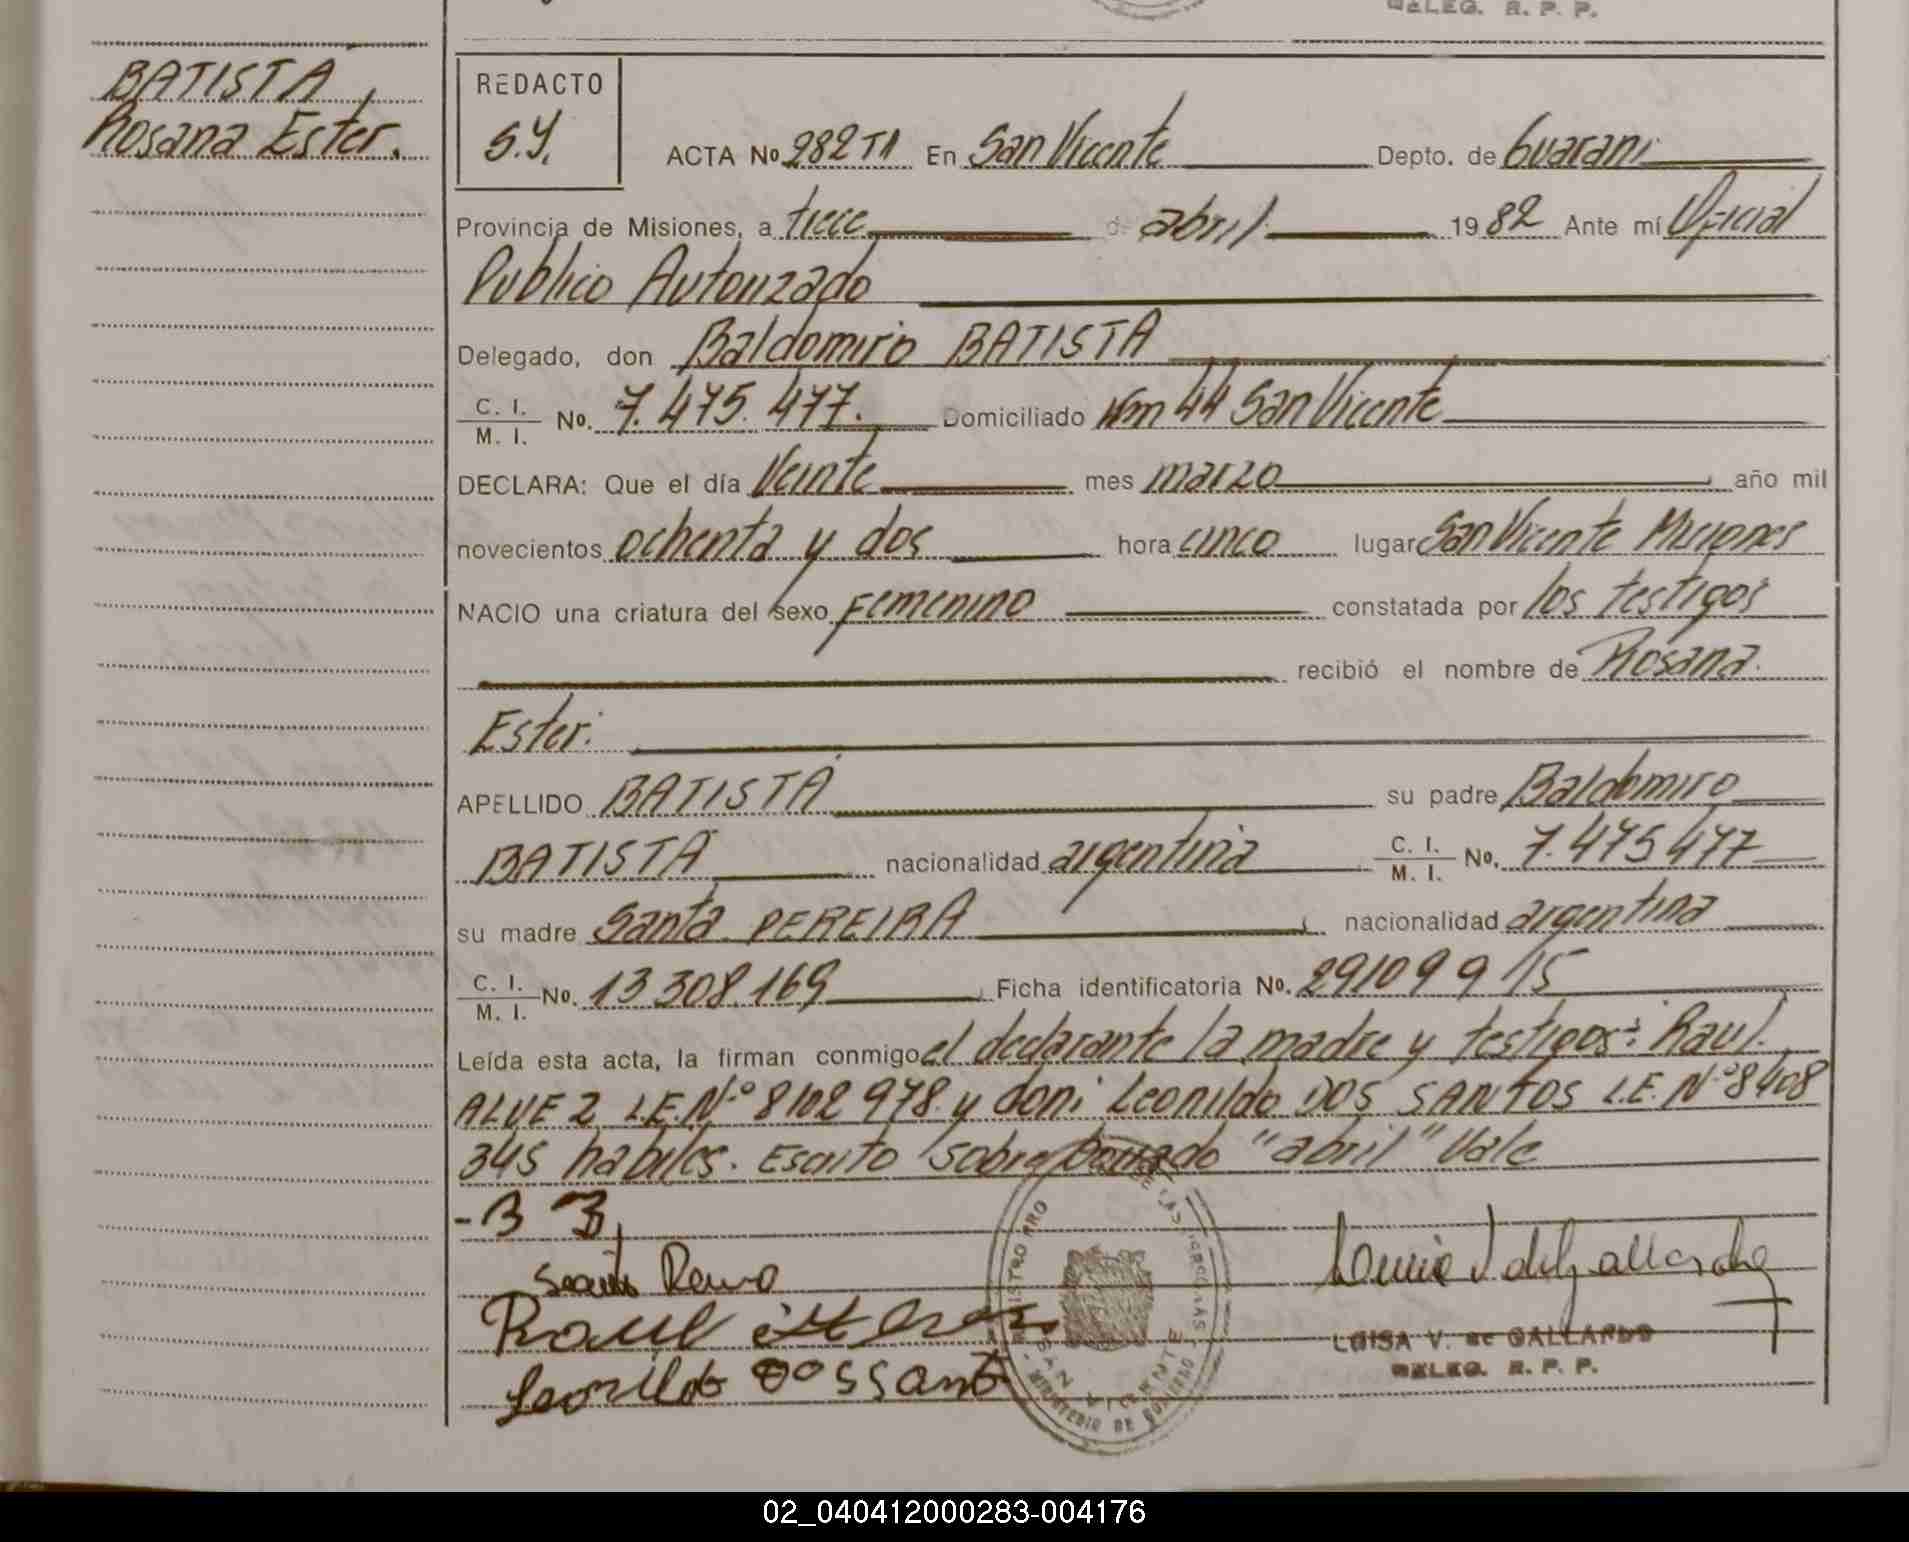 DELEG. R. P. P.
BATISTA
Rosana Ester.
REDACTO
S.Y.
ACTA No 282 T1 En San Vicente Depto. de Guarani
Provincia de Misiones, a trece de abril 1982 Ante mí Oficial
Publico Autorizado
Delegado, don Baldomiro BATISTA
C. I.
M. I. No. 7.475.477. Domiciliado Km 44 San Vicente
DECLARA: Que el día Veinte mes marzo año mil
novecientos ochenta y dos hora cinco lugar San Vicente Misiones
NACIO una criatura del sexo Femenino constatada por los testigos
recibió el nombre de Rosana
Ester.
APELLIDO BATISTA su padre Baldomiro
BATISTA nacionalidad argentina C. I.
M. I. No. 7.475 477
su madre Santa PEREIRA nacionalidad argentina
C. I.
M. I. No. 13 308 169 Ficha identificatoria No. 291099/15
Leída esta acta, la firman conmigo el declarante la madre y testigos: Raul
ALVEZ L.E. Nº 8102 978 y don: Leonildo DOS SANTOS L.E. Nº 8408
345 habiles. Escrito sobre borrado "abril" Vale
- B B
Raul
Leonildo Dos Santo
LUISA V. de GALLARDO
DELEG. R. P. P.
SAN VICENTE
MINISTERIO DE GOBIERNO
02_040412000283-004176